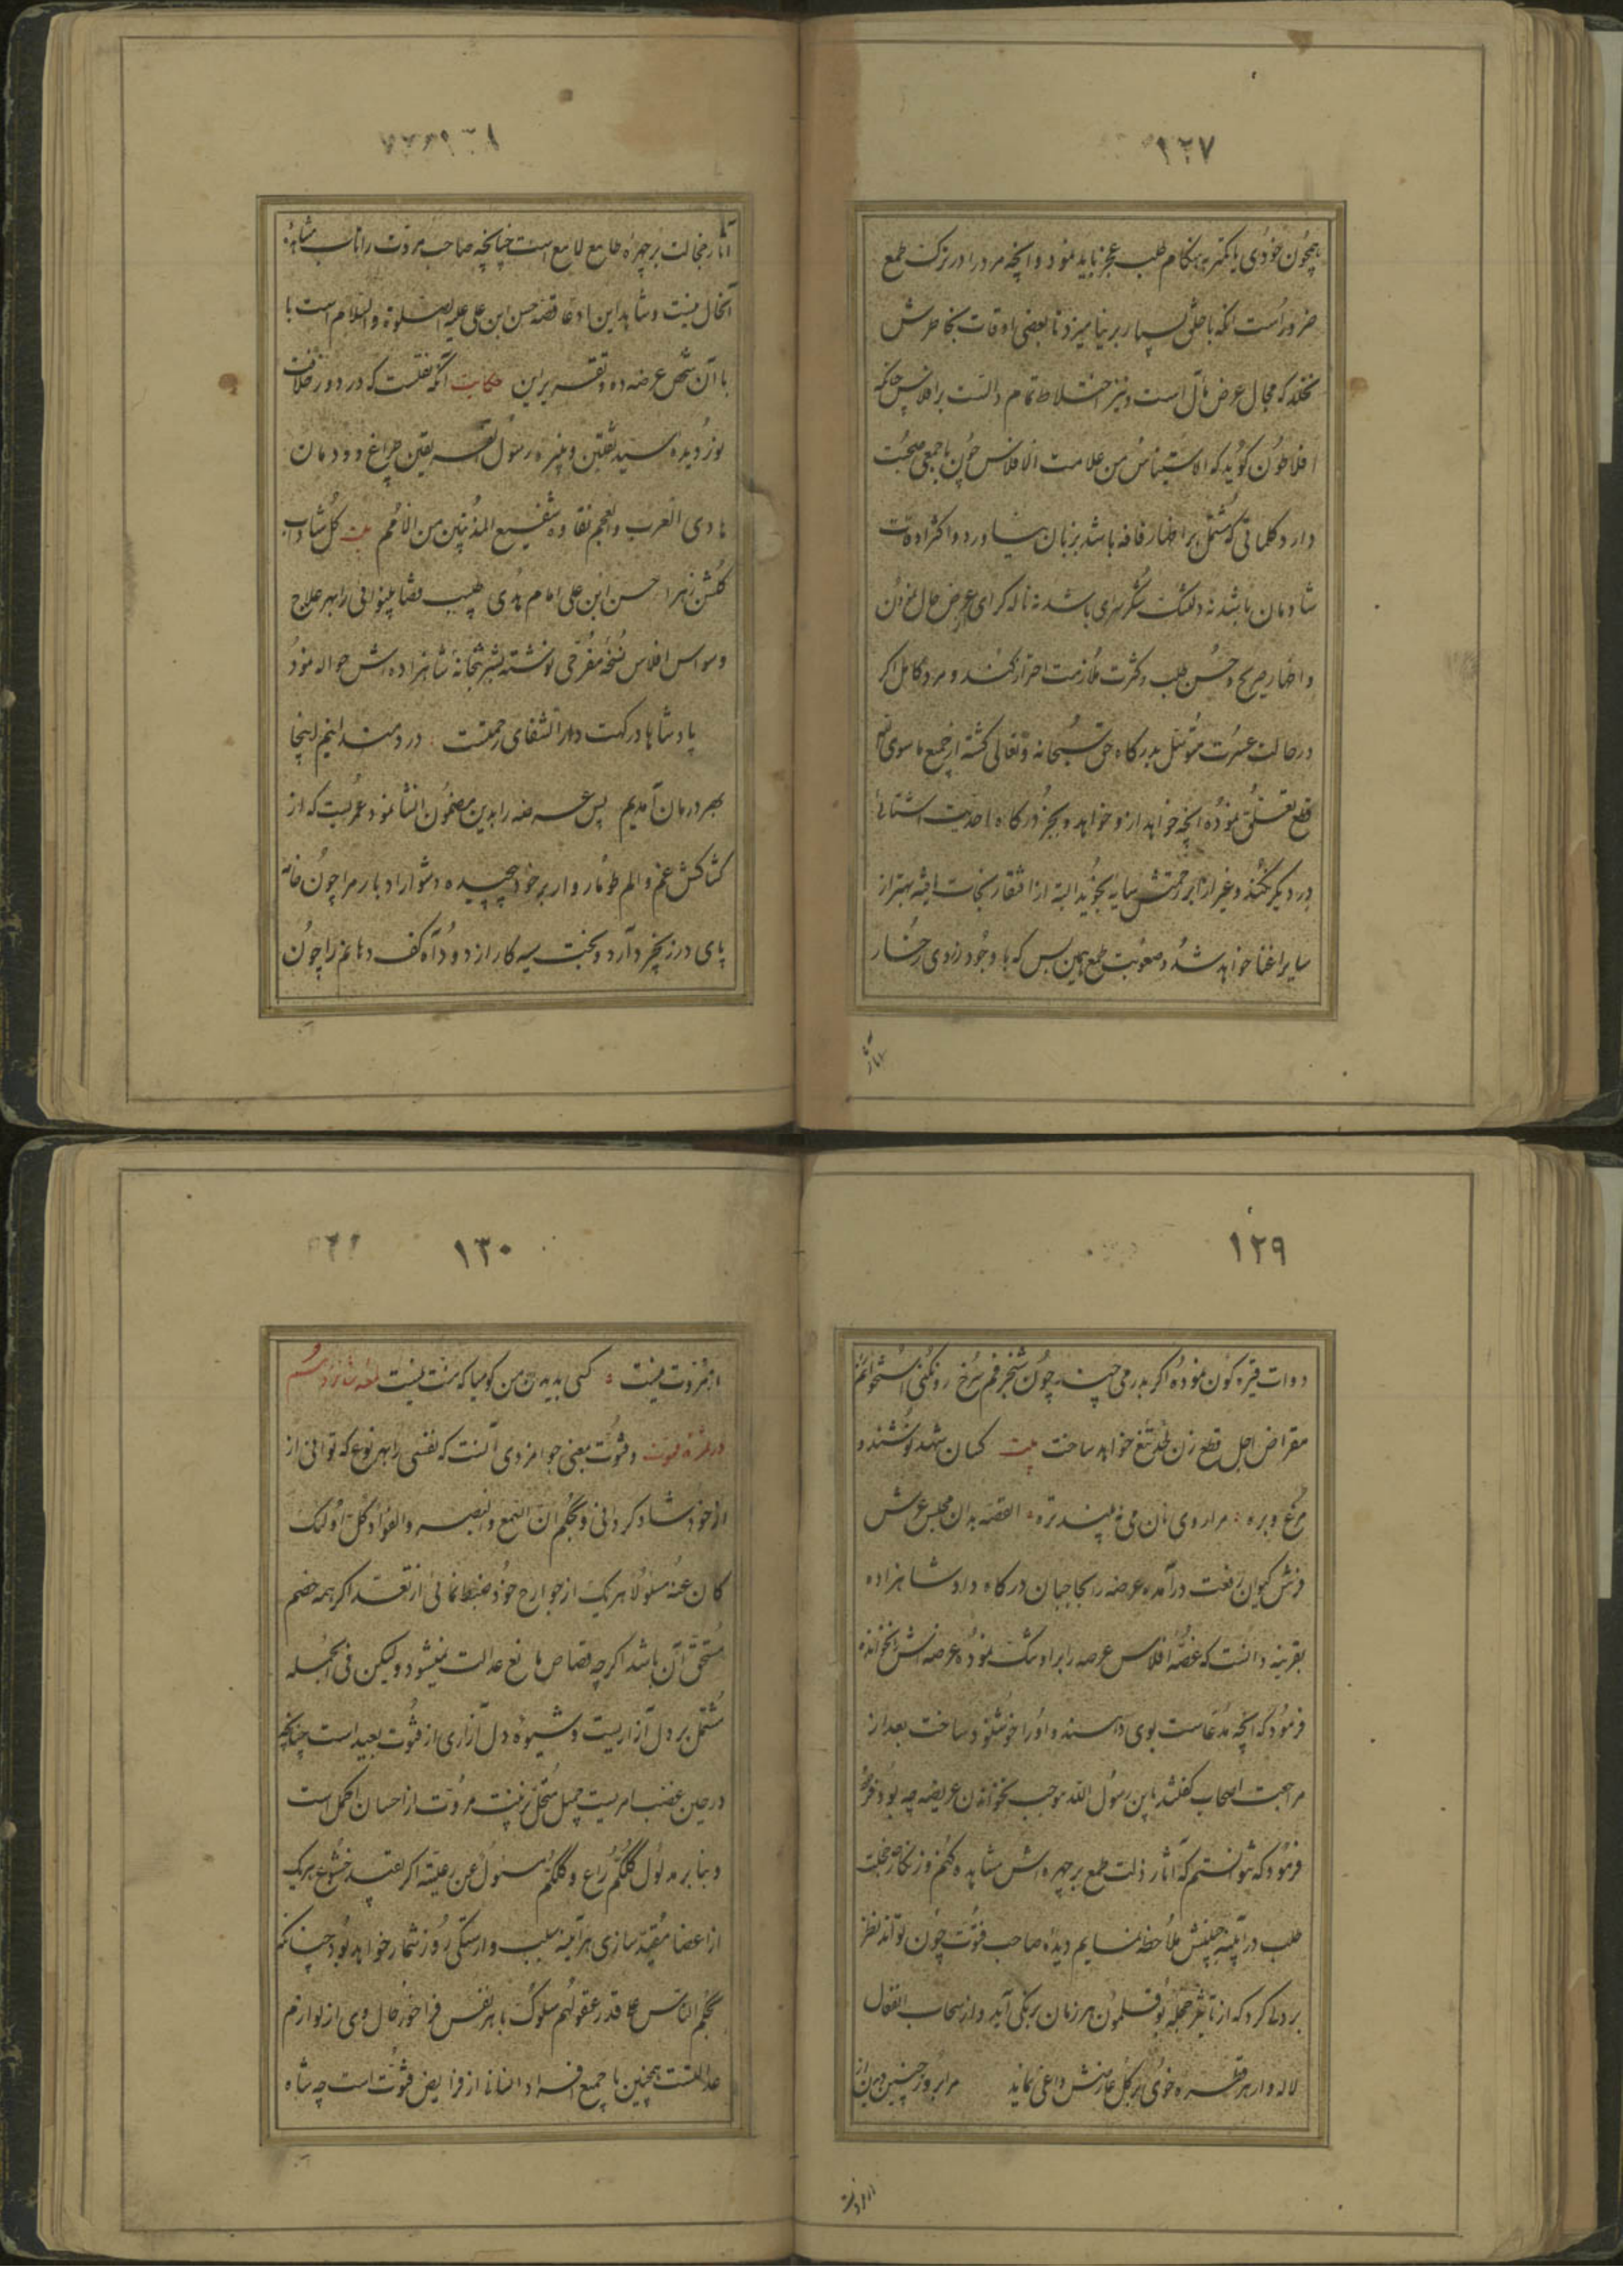 ۱۲۷
همچون خودی یا کمتر بهنگام طلب عجز باید نمود و آنچه مرد را در ترک طمع
ضرور است آنکه با خلق بسیار برنیامیزد تا بعضی اوقات بخاطرش
نخلد که مجال عرض حال است و نیز اختلاط تمام دالست بر افلاس چنانکه
افلاطون گوید که الاستیناس من علامت الافلاس چون با جمعی صحبت
دارد کلماتی که مشتمل بر اظهار فاقه باشد بزبان نیاورد و اکثر اوقات
شادمان باشد نه دلتنگ شکرسرای باشد نه ناله گرای عرض حال نمودن
و اظهار صریح و حسن طلب و کثرت ملازمت احتراز کند و مرد کامل اگر
در حالت عسرت متوسل بدرگاه حق سبحانه و تعالی گشته از جمیع ماسوی
قطع تعلق نموده آنچه خواهد ازو خواهد و بجز درگاه احدیت آستانه
در دیگر نگیرد و غیر از ابر رحمتش سایه نجوید البته از افتقار نجات یافته بهتر از
سایر اغنیا خواهد شد و صعوبت طمع همین بس که با وجود زردی رخسار
آثار
۱۲۸
آثار خجالت بر چهره طامع لامع است چنانچه صاحب مروت را تاب مشاهده
آنحال نیست و شاهد این ادعا قصه حسن ابن علی علیه الصلوة والسلام است با
با آن شخص عرضه ده و تقریر این حکایت آنکه نقلست که در دور خلافت
نور دیده سید ثقلین و نبیره رسول بقین چراغ دودمان
هادی العرب والعجم نقاوه شفیع المذنبین من الامم بیت گل شاداب
گلشن زهرا حسن ابن علی امام هدی طبیب قضا بینوائی را بهر علاج
وسواس افلاس نسخه مفرحی نوشته بشربتخانه شاهزاده اش حواله نمود
پادشاها درگهت دار الشفای رحمتست دردمندانیم اینجا
بهر درمان آمدیم پس عرضه را بدین مضمون انشا نمود عمریست که از
کشاکش غم و الم طومار وار بر خود پیچیده و ادبار مرا چون خامه
پای در زنجیر دارد و بخت سیه کار از دود آه کف دهانم را چون
۱۲۹
دوات قیره گون نموده اگر بدرمی چند چون شنجرفم سرخ رو نکنی استخوانم
مقراض اجل قطع زن خواهد ساخت بیت کسان شهد نوشند و
مرغ و بره مرا روی نان می نبیند تره القصه بدان مجلس عرش
فرش کیوان رفعت درآمده عرضه را بحاجبان درگاه داد شاهزاده
بقرینه دانست که غصه افلاس عرصه را بر او تنگ نموده عرضه اش نخوانده
فرمود که آنچه مدعاست بوی دهند و او را خوشنود ساخت بعد از
مراجعت اصحاب گفتند یا بن رسول الله موجب نخواندن عریضه چه بود
فرمود که نتوانستم که آثار ذلت طمع بر چهره اش مشاهده کنم و زنگار خجلت
طلب در آینه جبینش ملاحظه نمایم دیده صاحب فتوت چون تواند نظر
بر روی کرد که از تاثیر خجلت بوقلمون هر زمان برنگی آید و از سحاب انفعال
لاله وار هر قطره خوی بر گل عارضش داغی نماید مرا بروز چنین دیدن از
از مروت
۱۳۰
از مروت نیست کسی بدیدن من گو میا که منت نیست
در فتوت و فتوت بمعنی جوانمردی آنست که نفسی را بهر نوع که توانی از
از خود شاد گردانی و بحکم ان السمع والبصر والفؤاد کل اولئک
کان عنه مسئولا هر یک از جوارح خود ضبط نمائی از تعدی اگر همه خصم
مستحق آن باشد اگرچه قصاص مانع عدالت نمیشود ولیکن فی الجمله
مشتمل بر دل آزاریست و شیوه دل آزاری از فتوت بعید است چنانکه
در حین غضب امریست جمیل تحمل زینت مروت از احسان اکمل است
و بنا بر مدلول کلکم راع و کلکم مسئول عن رعیته اگر بقید خشوع هر یک
از اعضا مقید سازی هر آینه سبب وارستگی روز شمار خواهد بود چنانکه
بحکم الناس علی قدر عقولهم سلوک با هر نفس فراخور حال وی از لوازم
عدالتست همچنین با جمیع افراد انسان از فرایض فتوت است چه شاه